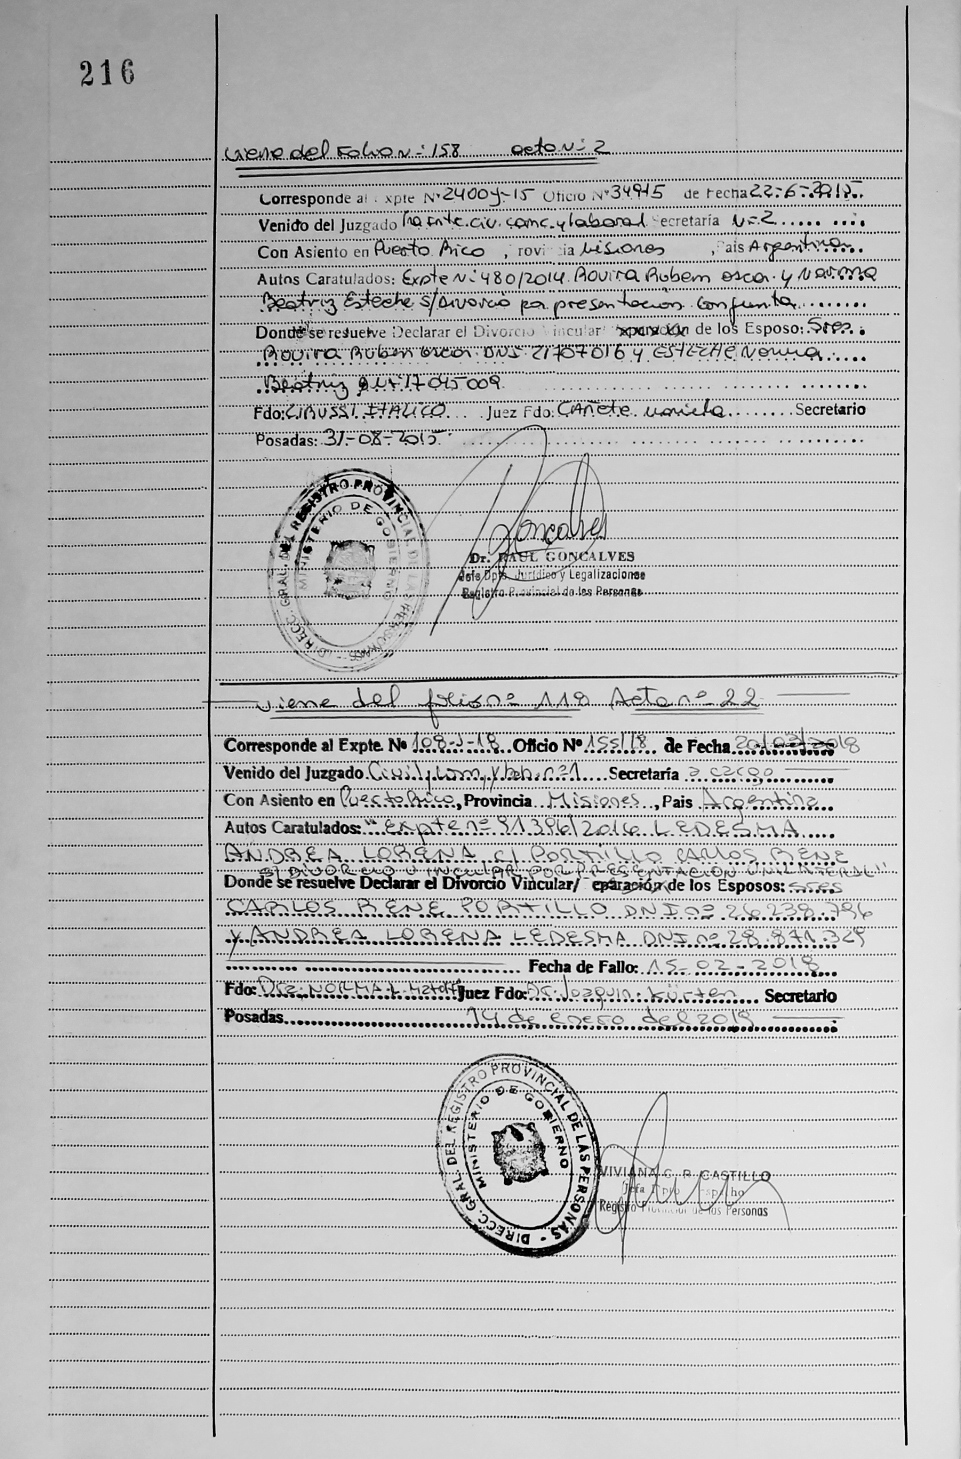 216
viene del Folio Nº 158 acta Nº 2
Corresponde al Expte Nº 2400-J-15 Oficio Nº 349/15 de Fecha 22-6-2015
Venido del Juzgado civ. comc. y laboral Secretaría Nº 2
Con Asiento en Puerto Rico, Provincia Misiones, País Argentina
Autos Caratulados: Expte Nº 480/2014 Rovira Ruben oscar y Norma
Beatriz Esteche s/Divorcio por presentación Conjunta
Donde se resuelve Declarar el Divorcio Vincular de los Esposo: Sres.
Rovira Ruben oscar DNI 21707016 y ESTECHE Norma
Beatriz 17045009
Fdo: ITALICO Juez Fdo: CAÑETE Secretario
Posadas: 31-08-2015
DIRECC. GRAL. DEL REGISTRO PROVINCIAL DE LAS PERSONAS
MINISTERIO DE GOBIERNO
Goncalves
Dr. RAUL GONCALVES
Jefe Dpto. Jurídico y Legalizaciones
Registro Provincial de las Personas
viene del folio nº 118 Acta nº 22
Corresponde al Expte. Nº 108-J-18 Oficio Nº 155/18 de Fecha 20/03/2018
Venido del Juzgado Civil, Com, y Lab. nº 1 Secretaría a cargo
Con Asiento en Puerto Rico, Provincia Misiones, Pais Argentina
Autos Caratulados: "Expte nº 91396/2016 LEDESMA
ANDREA LORENA c/ PORTILLO CARLOS RENE
S/ DIVORCIO VINCULAR POR PRESENTACION UNILATERAL"
Donde se resuelve Declarar el Divorcio Vincular/ eparación de los Esposos: Sres
CARLOS RENE PORTILLO DNI nº 26.238.796
y ANDREA LORENA LEDESMA DNI nº 28.871.329
Fecha de Fallo: 15-02-2018
Fdo: Dra. NORMA L. Juez Fdo: Dr. Joaquin Kürten Secretario
Posadas 14 de enero del 2019
DIRECC. GRAL. DEL REGISTRO PROVINCIAL DE LAS PERSONAS
MINISTERIO DE GOBIERNO
VIVIANA G. R. CASTILLO
Jefa Dpto. Despacho
Registro Provincial de las Personas